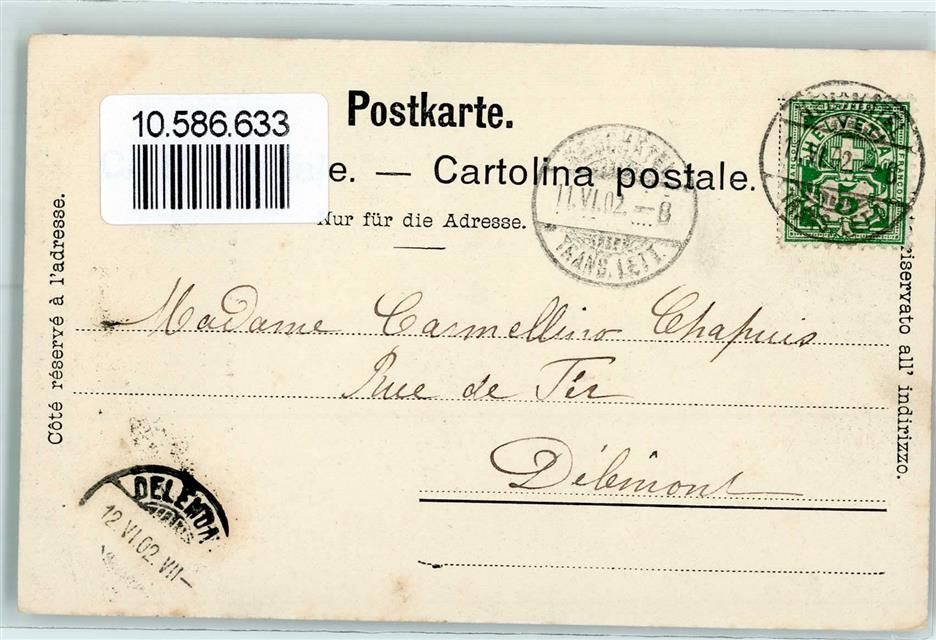 Postkarte.
10.586.633
e. — Cartolina postale.
Nur für die Adresse.
Côté réservé à l'adresse.
riservato all' indirizzo.
HELVETIA
FRANCO
5
11.VI.02.–8
TRANS. LETT.
Madame Carmellino Chapuis
Rue de Fer
Délémont
DELÉMO
12.VI.02.VII–